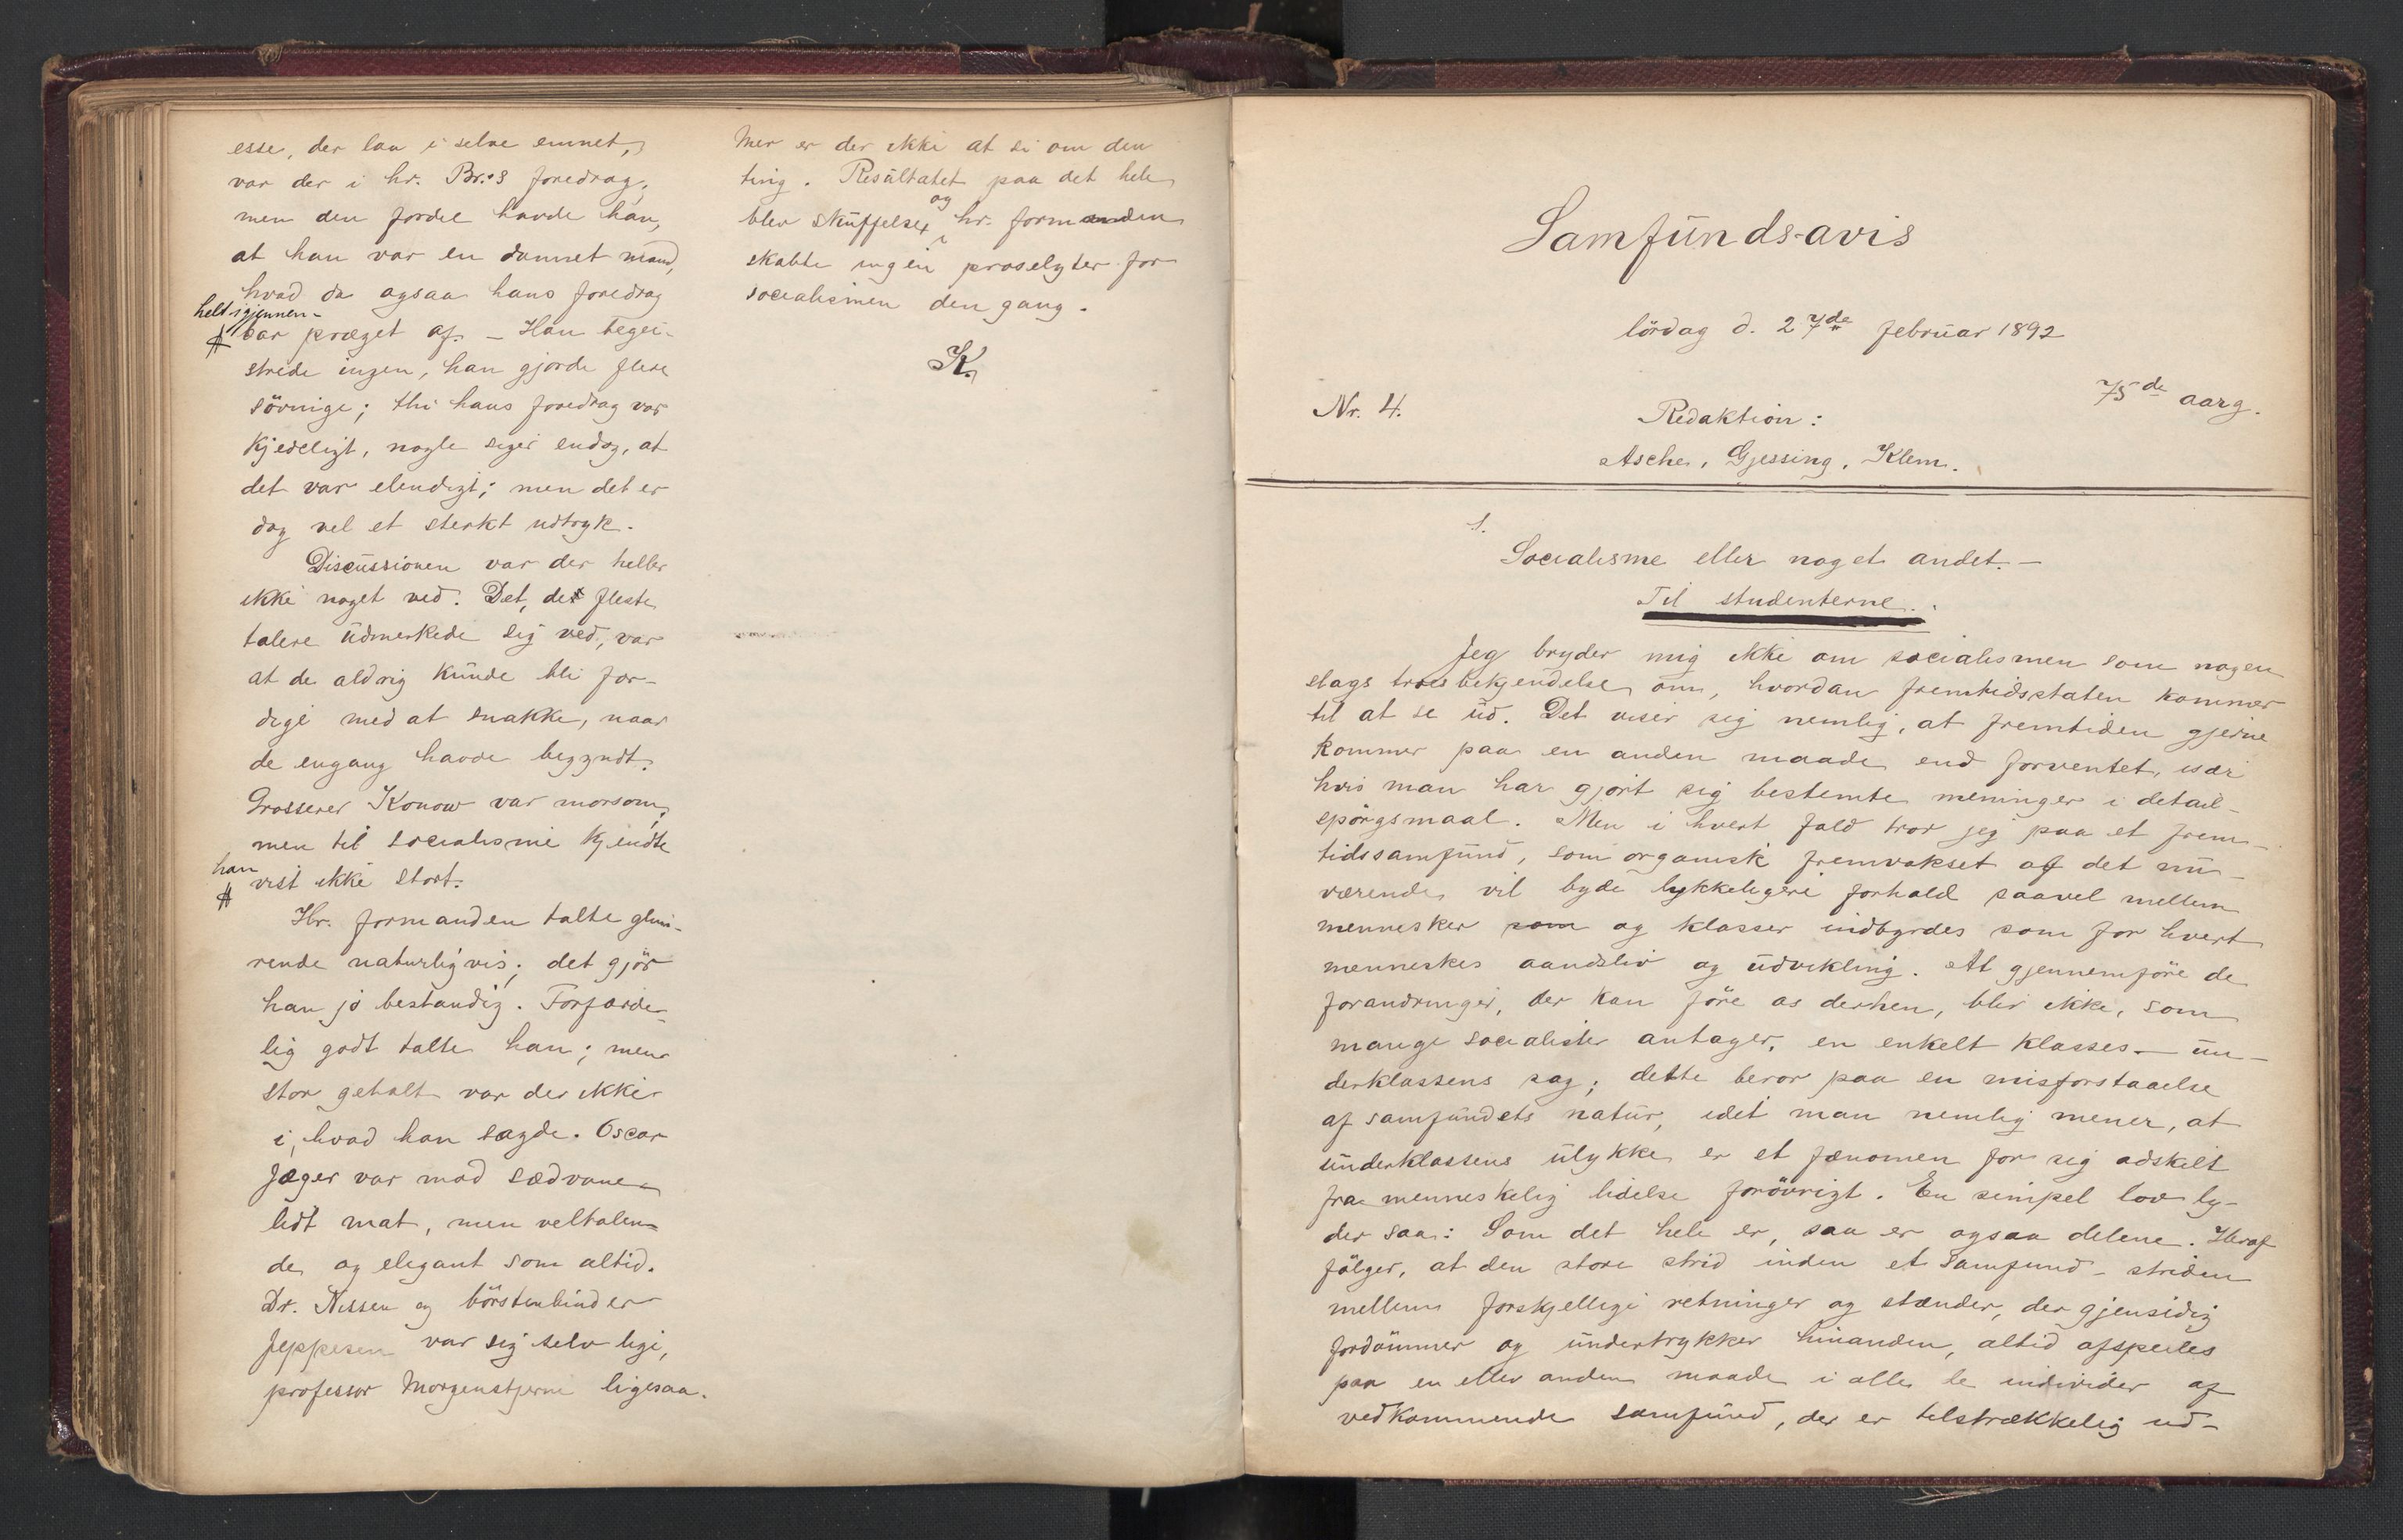 esse, der laa i selve emnet,
var der i hr. Br.'s foredrag,
men den fordel havde han,
at han var en dannet mand,
hvad da ogsaa hans foredrag
helt igjennem
var præget af. – Han begei-
strede ingen, han gjorde flere
sövnige; thi hans foredrag var
kjedeligt, nogle siger endog, at
det var elendigt; men det er
dog vel et sterkt udtryk.
Discussionen var der heller
ikke noget ved. Det, de fleste
talere udmerkede sig ved, var
at de aldrig kunde bli fær-
dige med at snakke, naar
de engang havde begyndt.
Grosserer Konow var morsom,
men til socialisme kjendte
han
vist ikke stort.
Hr. formanden talte glim-
rende naturligvis; det gjör
han jo bestandig. Forfærde-
lig godt talte han; men
stor gehalt var der ikke
i, hvad han sagde. Oscar
Jæger var mod sædvane
lidt mat, men veltalen-
de og elegant som altid.
Dr. Nissen og börstenbinder
Jeppesen var sig selv lige,
professor Morgenstjerne ligesaa.
Mer er der ikke at si om den
ting. Resultatet paa det hele
blev skuffelse, og hr. formanden
skabte ingen proselyter for
socialismen den gang.
K.
Samfunds-avis
lördag d. 27de februar 1892
75de aarg.
Nr. 4.
Redaktion:
Asche, Gjessing, Klem.
1.
Socialisme eller noget andet. –
Til studenterne.
Jeg bryder mig ikke om socialismen som nogen
slags troesbekjendelse om, hvordan fremtidsstaten kommer
til at se ud. Det viser sig nemlig, at fremtiden gjerne
kommer paa en anden maade end forventet, især
hvis man har gjort sig bestemte meninger i detail-
spörgsmaal. Men i hvert fald tror jeg paa et frem-
tidssamfund, som organisk fremvokset af det nu-
værende vil byde lykkeligere forhold saavel mellem
mennesker som og klasser indbyrdes som for hvert
menneskes aandsliv og udvikling. At gjennemföre de
forandringer, der kan före os derhen, blir ikke, som
mange socialister antager, en enkelt klasses – un-
derklassens sag; dette beror paa en misforstaaelse
af samfundets natur, idet man nemlig mener, at
underklassens ulykke er et fænomen for sig adskilt
fra menneskelig lidelse forövrigt. En simpel lov ly-
der saa: Som det hele er, saa er ogsaa delene. Heraf
fölger, at den store strid inden et samfund – striden
mellem forskjellige retninger og stænder, der gjensidig
fordömmer og undertrykker hinanden, altid afspeiles
paa en eller anden maade i alle de individer af
vedkommende samfund, der er tilstrækkelig ud-